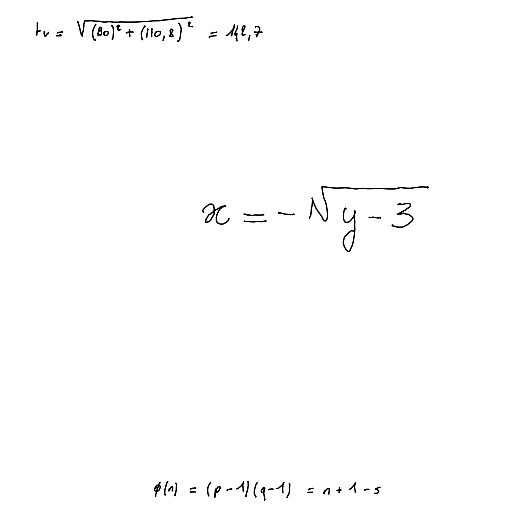 Fv = √((90)² + (110,8)²) = 142,7
x = -√(y - 3)
φ(n) = (p - 1)(q - 1) = n + 1 - s